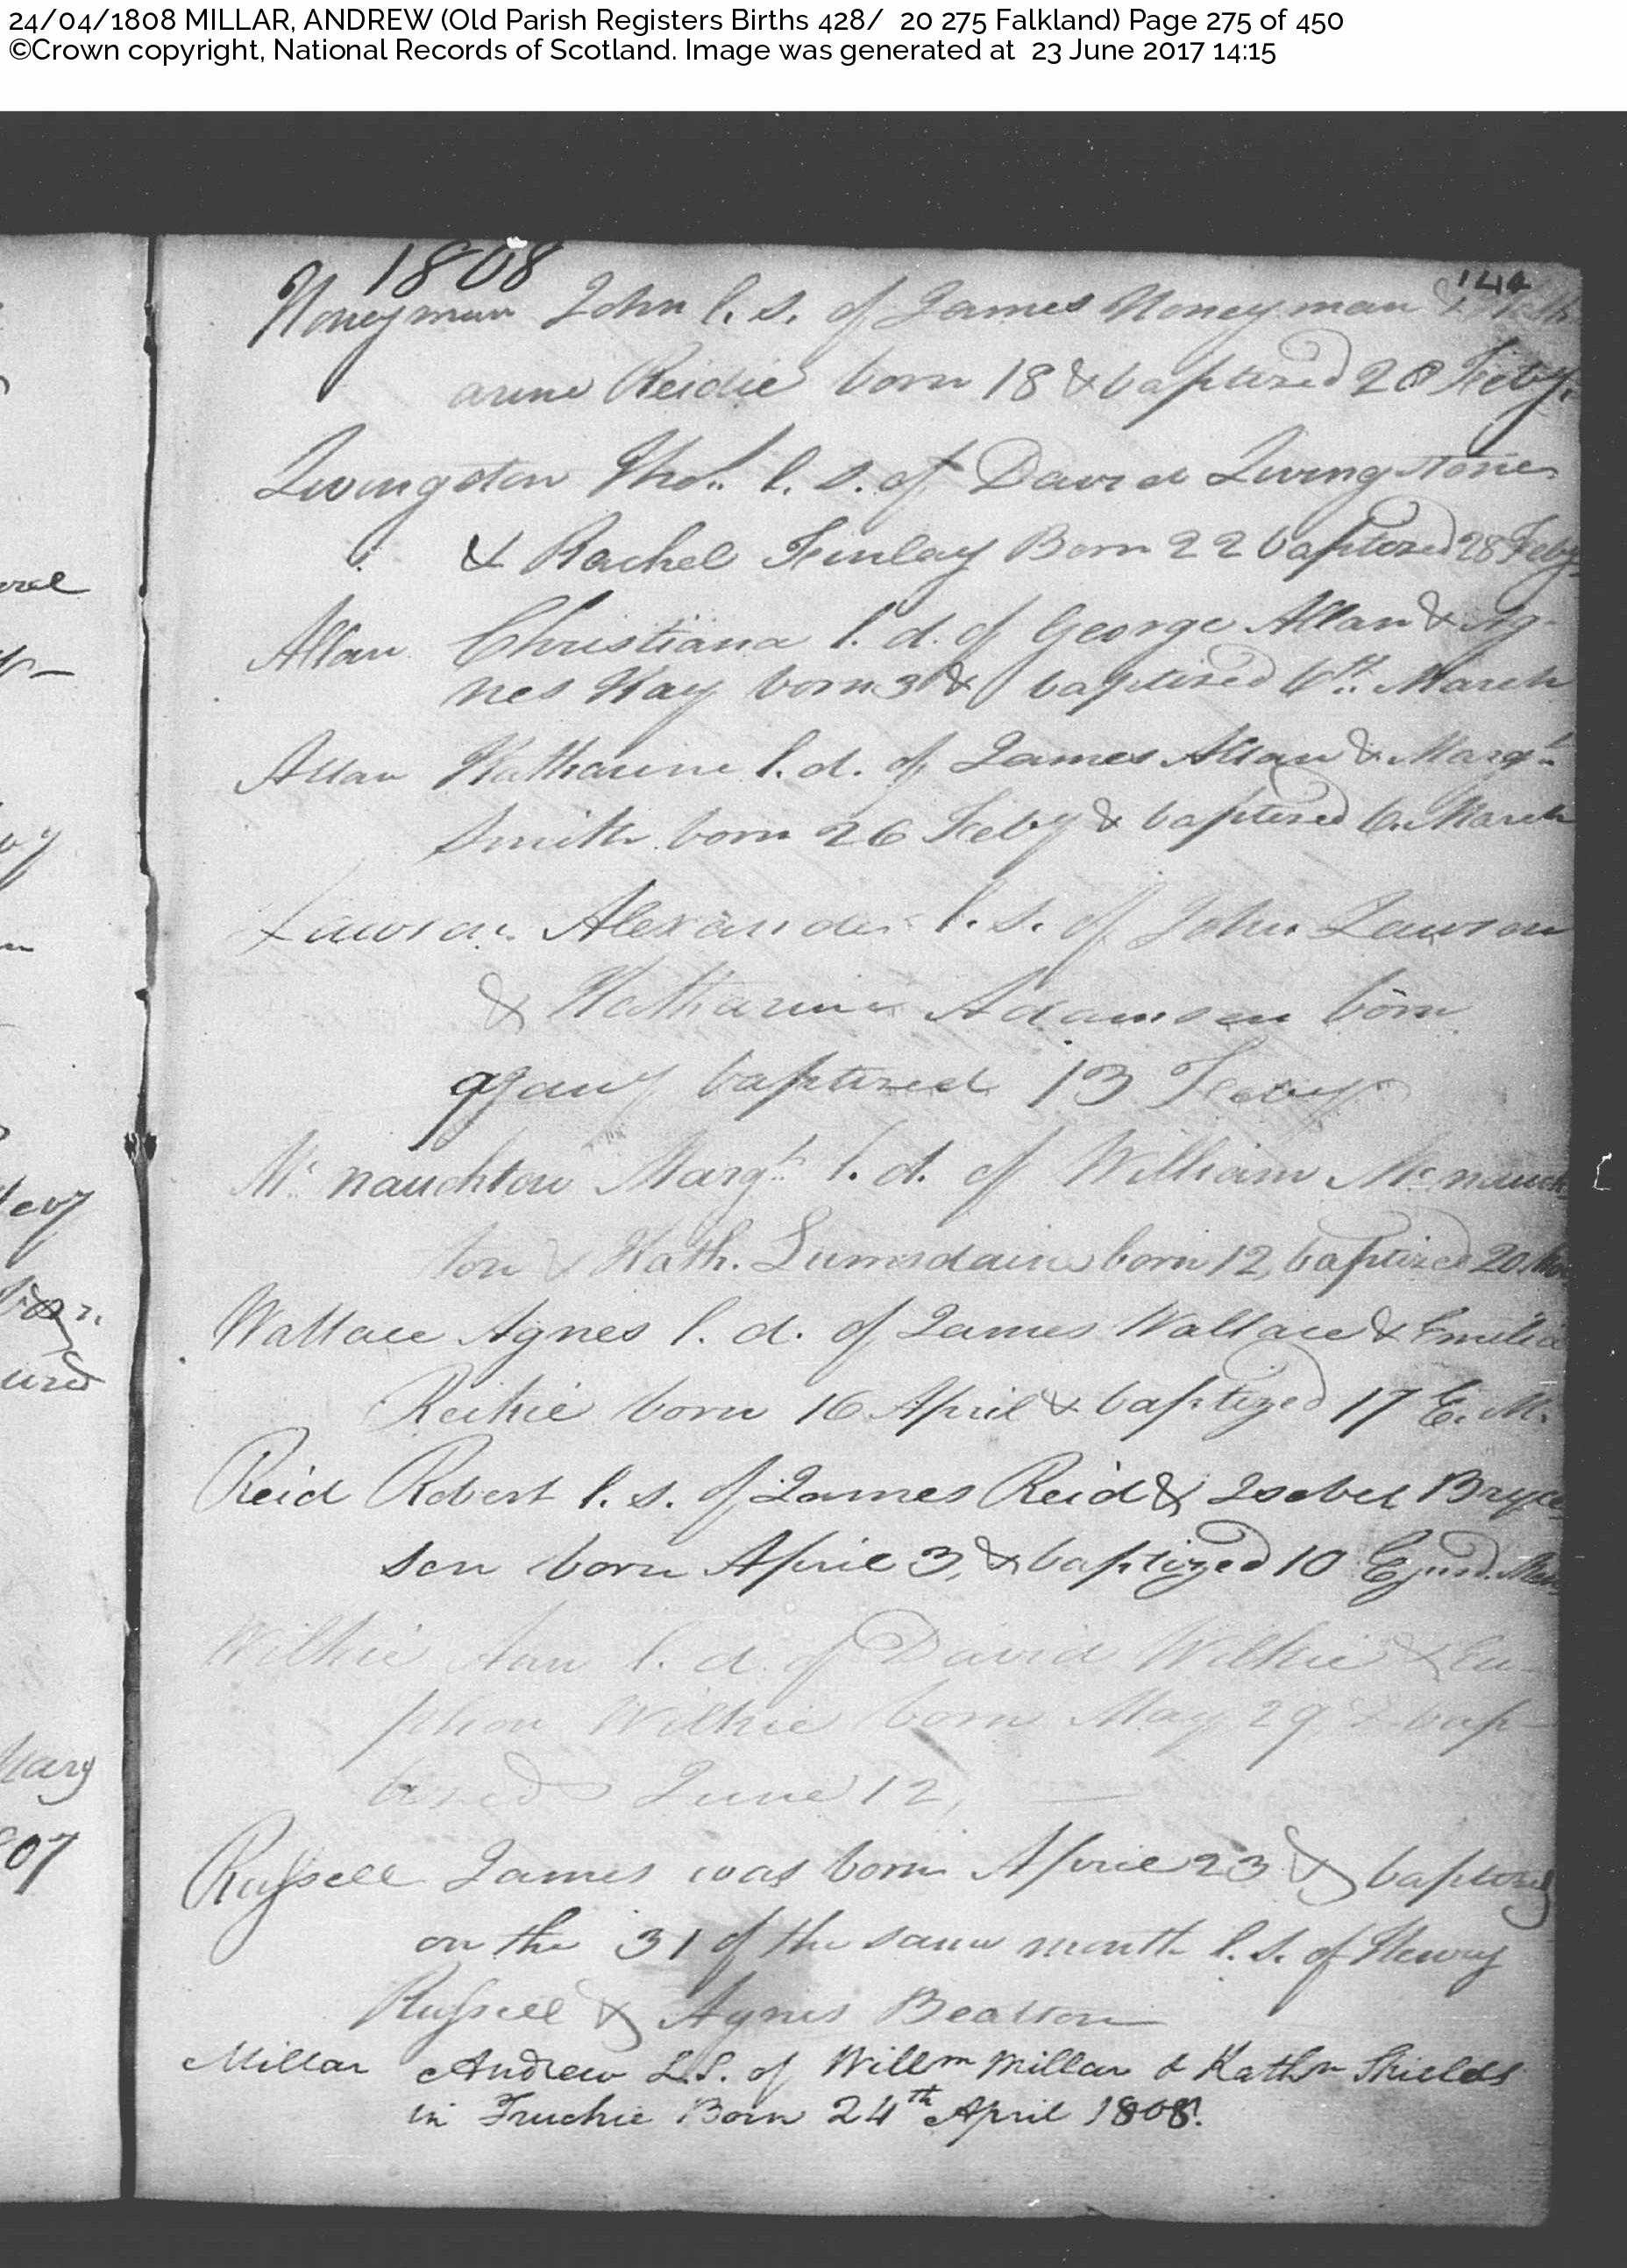 24/04/1808 MILLAR, ANDREW (Old Parish Registers Births 428/ 20 275 Falkland) Page 275 of 450
©Crown copyright, National Records of Scotland. Image was generated at 23 June 2017 14:15
1808
Honeyman John l. s. of James Honeyman & Kath
arine Reidie born 18 & baptized 28 Feby.
Livingston Thos. l. s. of David Livingstone
& Rachel Finlay Born 22 baptized 28 Feby
Allan Christiana l. d. of George Allan & Ag-
nes Kay born 3d & baptized 6th. March
Allan Katharine l. d. of James Allan & Margt.
Smith born 26 Feby & baptized 6. March
Lawson Alexander l. s. of John Lawson
& Katharine Adamson born
9 Jany baptized 13 Feby
Mc. nauchton Margt. l. d. of William Mc. nauch-
ton & Kath. Lumsdaine born 12, baptized 20
Wallace Agnes l. d. of James Wallace & Emilia
Reikie born 16 April & baptized 17 E. M.
Reid Robert l. s. of James Reid & Isobel Bryce
son born April 3, & baptized 10 Ejusd. Mens
Wilkie Ann l. d. of David Wilkie & Eu-
phan Wilkie born May 29, & bap-
tized June 12,
Russell James was born April 23 & baptized
on the 31 of the same month l. s. of Henry
Russell & Agnes Beatson
Millar Andrew L.S. of Willm Millar & Kathn Shields
in Fruchie Born 24th April 1808.
ured
07